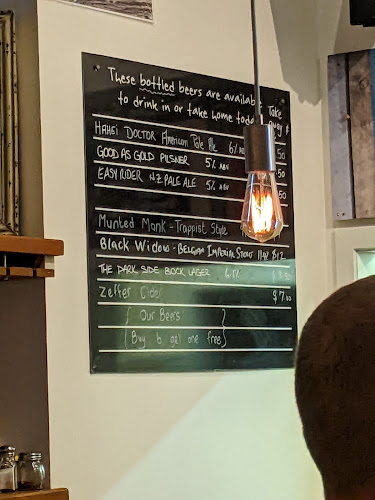 These bottled beers are available Take
to drink in or take home today away $
HAHEI DOCTOR American Pale Ale 6% ABV .50
GOOD AS GOLD PILSNER 5% ABV .50
EASY RIDER NZ PALE ALE 5% ABV .50
Munted Monk - Trappist Style
Black Widow - BELGIAN IMPERIAL STOUT $12
THE DARK SIDE BOCK LAGER
Zeffer Cider $7.00
Our Beers
Buy 6 get one free